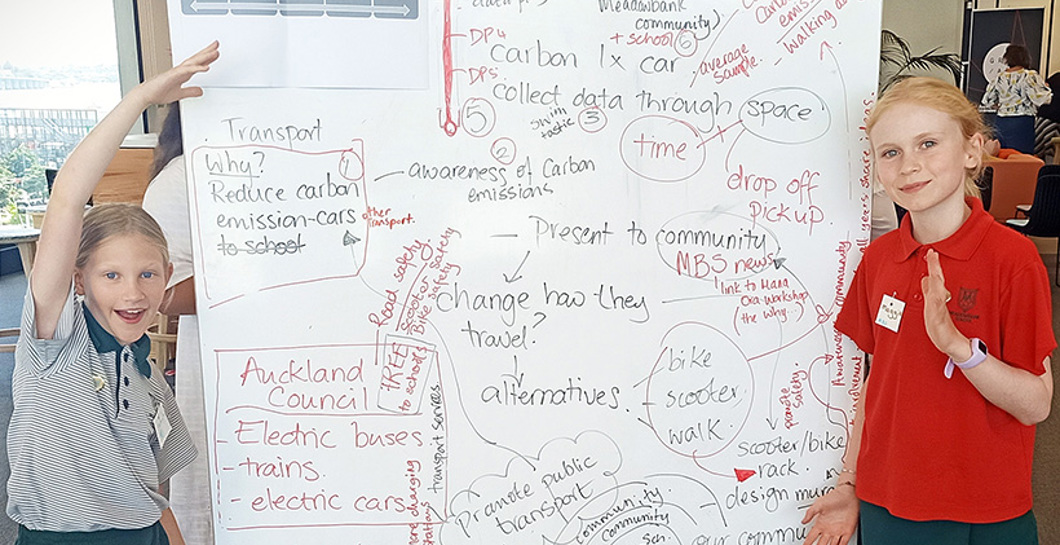 Meadowbank
community).
+ school 6
DP4
DP5
carbon 1x car
average
sample.
walking
collect data through space
5
swim
tastic 3
time
drop off
pick up
Transport
Why? 1
Reduce carbon
emission-cars
to school
other
transport.
2
awareness of Carbon
emissions
Present to community
MBS news
link to Mana
Ora workshop
(the why...)
Change how they
travel?
Road safety
Scooter safety
Bike safety
FREE
to schools
alternatives.
bike
scooter
walk.
Auckland
Council
- Electric buses
- trains.
- electric cars
transport services
more charging
stations
Promote public
transport
community
community
sch.
promote
safety.
scooter/bike
rack.
design
our
all years share ideas
Awareness community